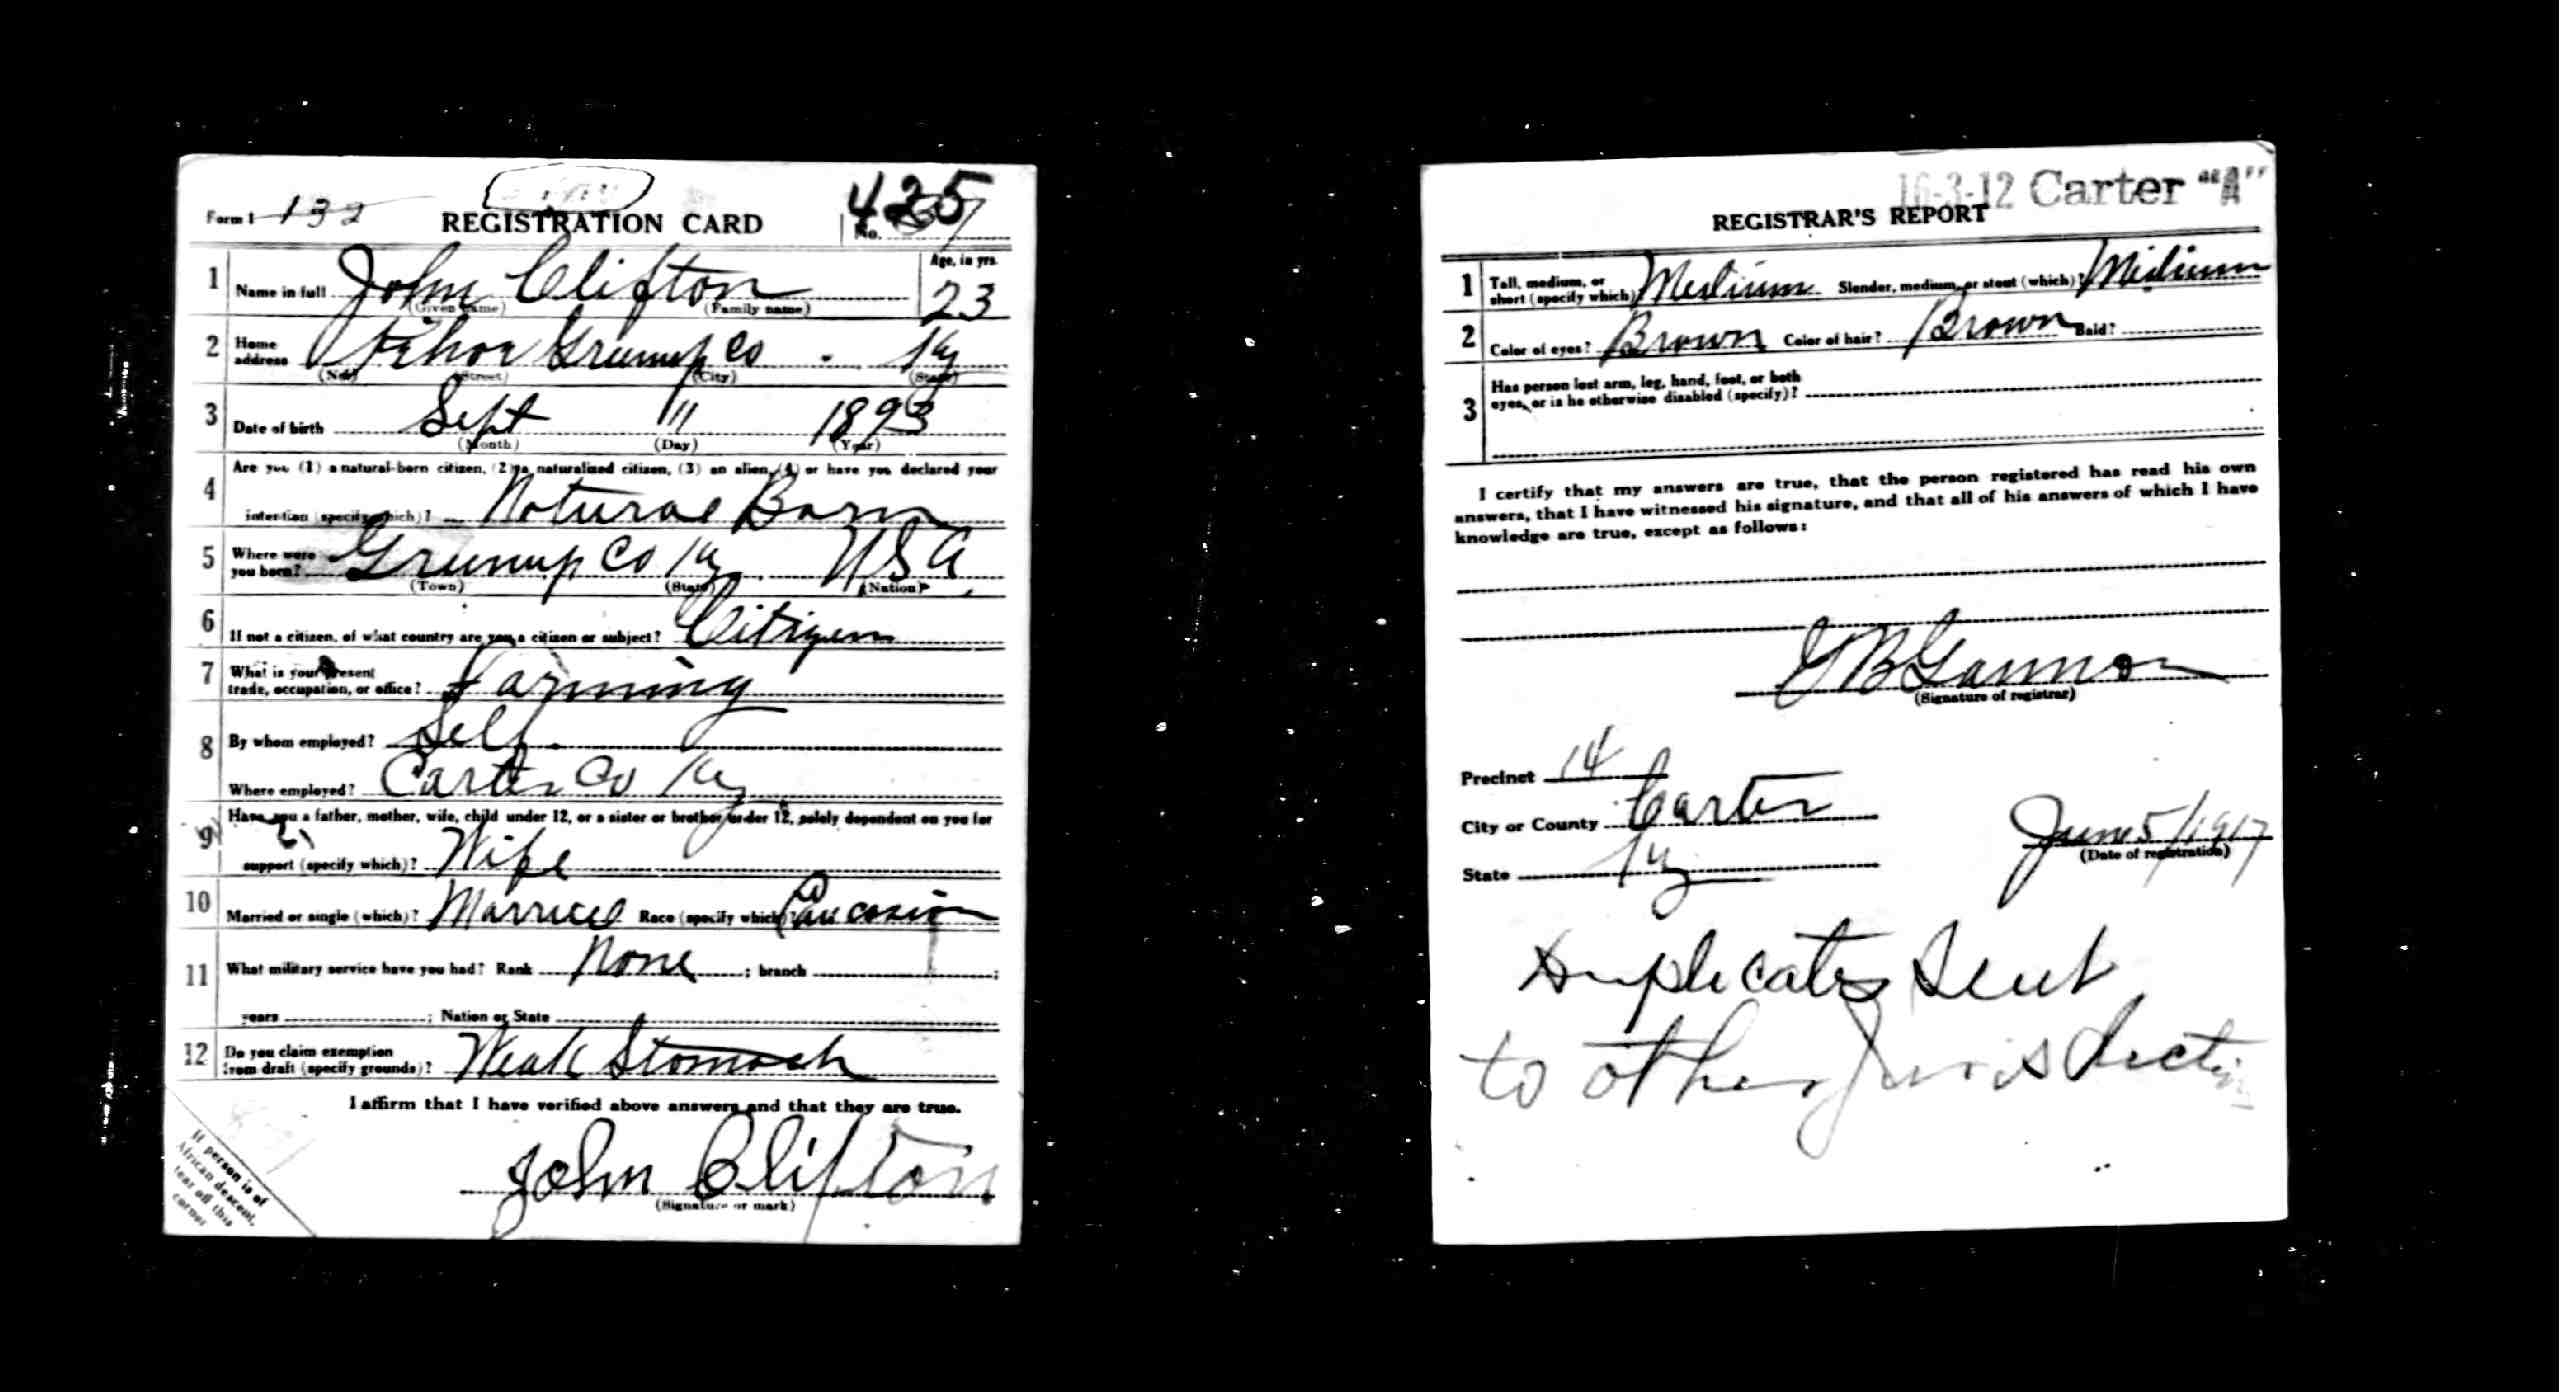 Form 1 132 REGISTRATION CARD No. 425
1 Name in full John Clifton Age, in yrs. 23
(Given name) (Family name)
2 Home address Co Ky
(No.) (Street) (City) (State)
3 Date of birth Sept 11 1893
(Month) (Day) (Year)
4 Are you (1) a natural-born citizen, (2) a naturalized citizen, (3) an alien, (4) or have you declared your
intention (specify which)? Natural Born
5 Where were you born? Greenup Co Ky USA
(Town) (State) (Nation)
6 If not a citizen, of what country are you a citizen or subject? Citizen
7 What is your present
trade, occupation, or office? Farming
8 By whom employed? Self
Where employed? Carter Co Ky
9 Have you a father, mother, wife, child under 12, or a sister or brother under 12, solely dependent on you for
support (specify which)? Wife
10 Married or single (which)? Married Race (specify which)? Caucasion
11 What military service have you had? Rank None ; branch ;
years ; Nation or State
12 Do you claim exemption
from draft (specify grounds)? Weak Stomach
I affirm that I have verified above answers and that they are true.
John Clifton
(Signature or mark)
If person is of
African descent,
tear off this
corner
16-3-12 Carter "A"
REGISTRAR'S REPORT
1 Tall, medium, or
short (specify which)? Medium Slender, medium, or stout (which)? Medium
2 Color of eyes? Brown Color of hair? Brown Bald?
3 Has person lost arm, leg, hand, foot, or both
eyes, or is he otherwise disabled (specify)?
I certify that my answers are true, that the person registered has read his own
answers, that I have witnessed his signature, and that all of his answers of which I have
knowledge are true, except as follows:
(Signature of registrar)
Precinct 14
City or County Carter
State Ky
June 5/1917
(Date of registration)
Duplicates Sent
to other Jurisdiction